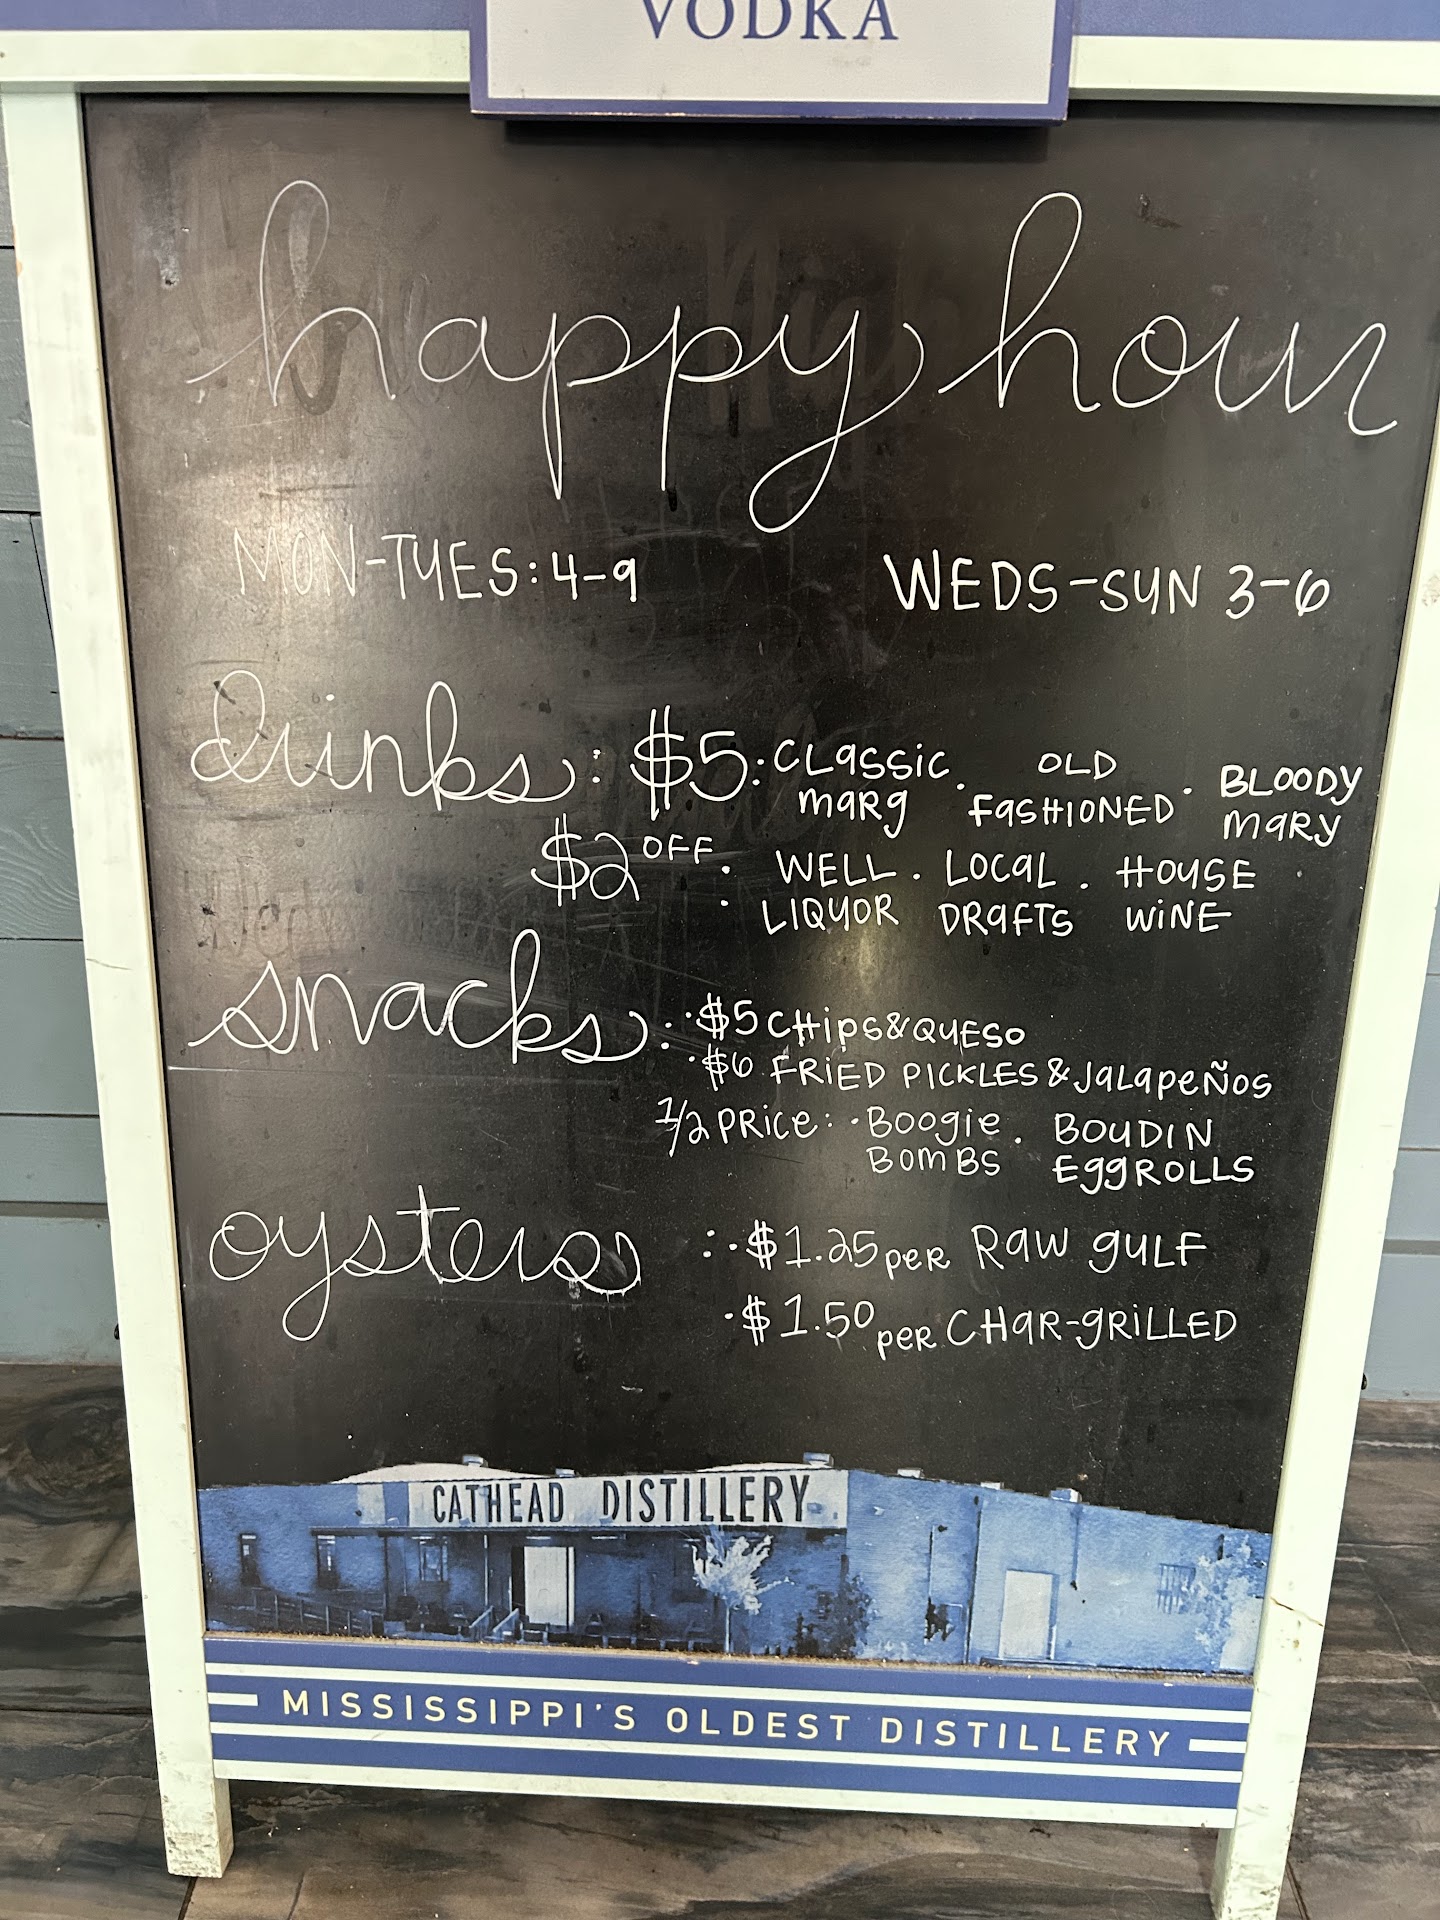 VODKA
happy hour
MON-TUES: 4-9 WEDS-SUN 3-6
drinks: $5: CLASSIC MARG · OLD FASHIONED · BLOODY MARY
$2 OFF: WELL LIQUOR · LOCAL DRAFTS · HOUSE WINE
snacks: · $5 CHIPS & QUESO
· $6 FRIED PICKLES & JALAPEÑOS
1/2 PRICE: · BOOGIE BOMBS · BOUDIN EGGROLLS
oysters: · $1.25 per RAW GULF
· $1.50 per CHAR-GRILLED
CATHEAD DISTILLERY
MISSISSIPPI'S OLDEST DISTILLERY